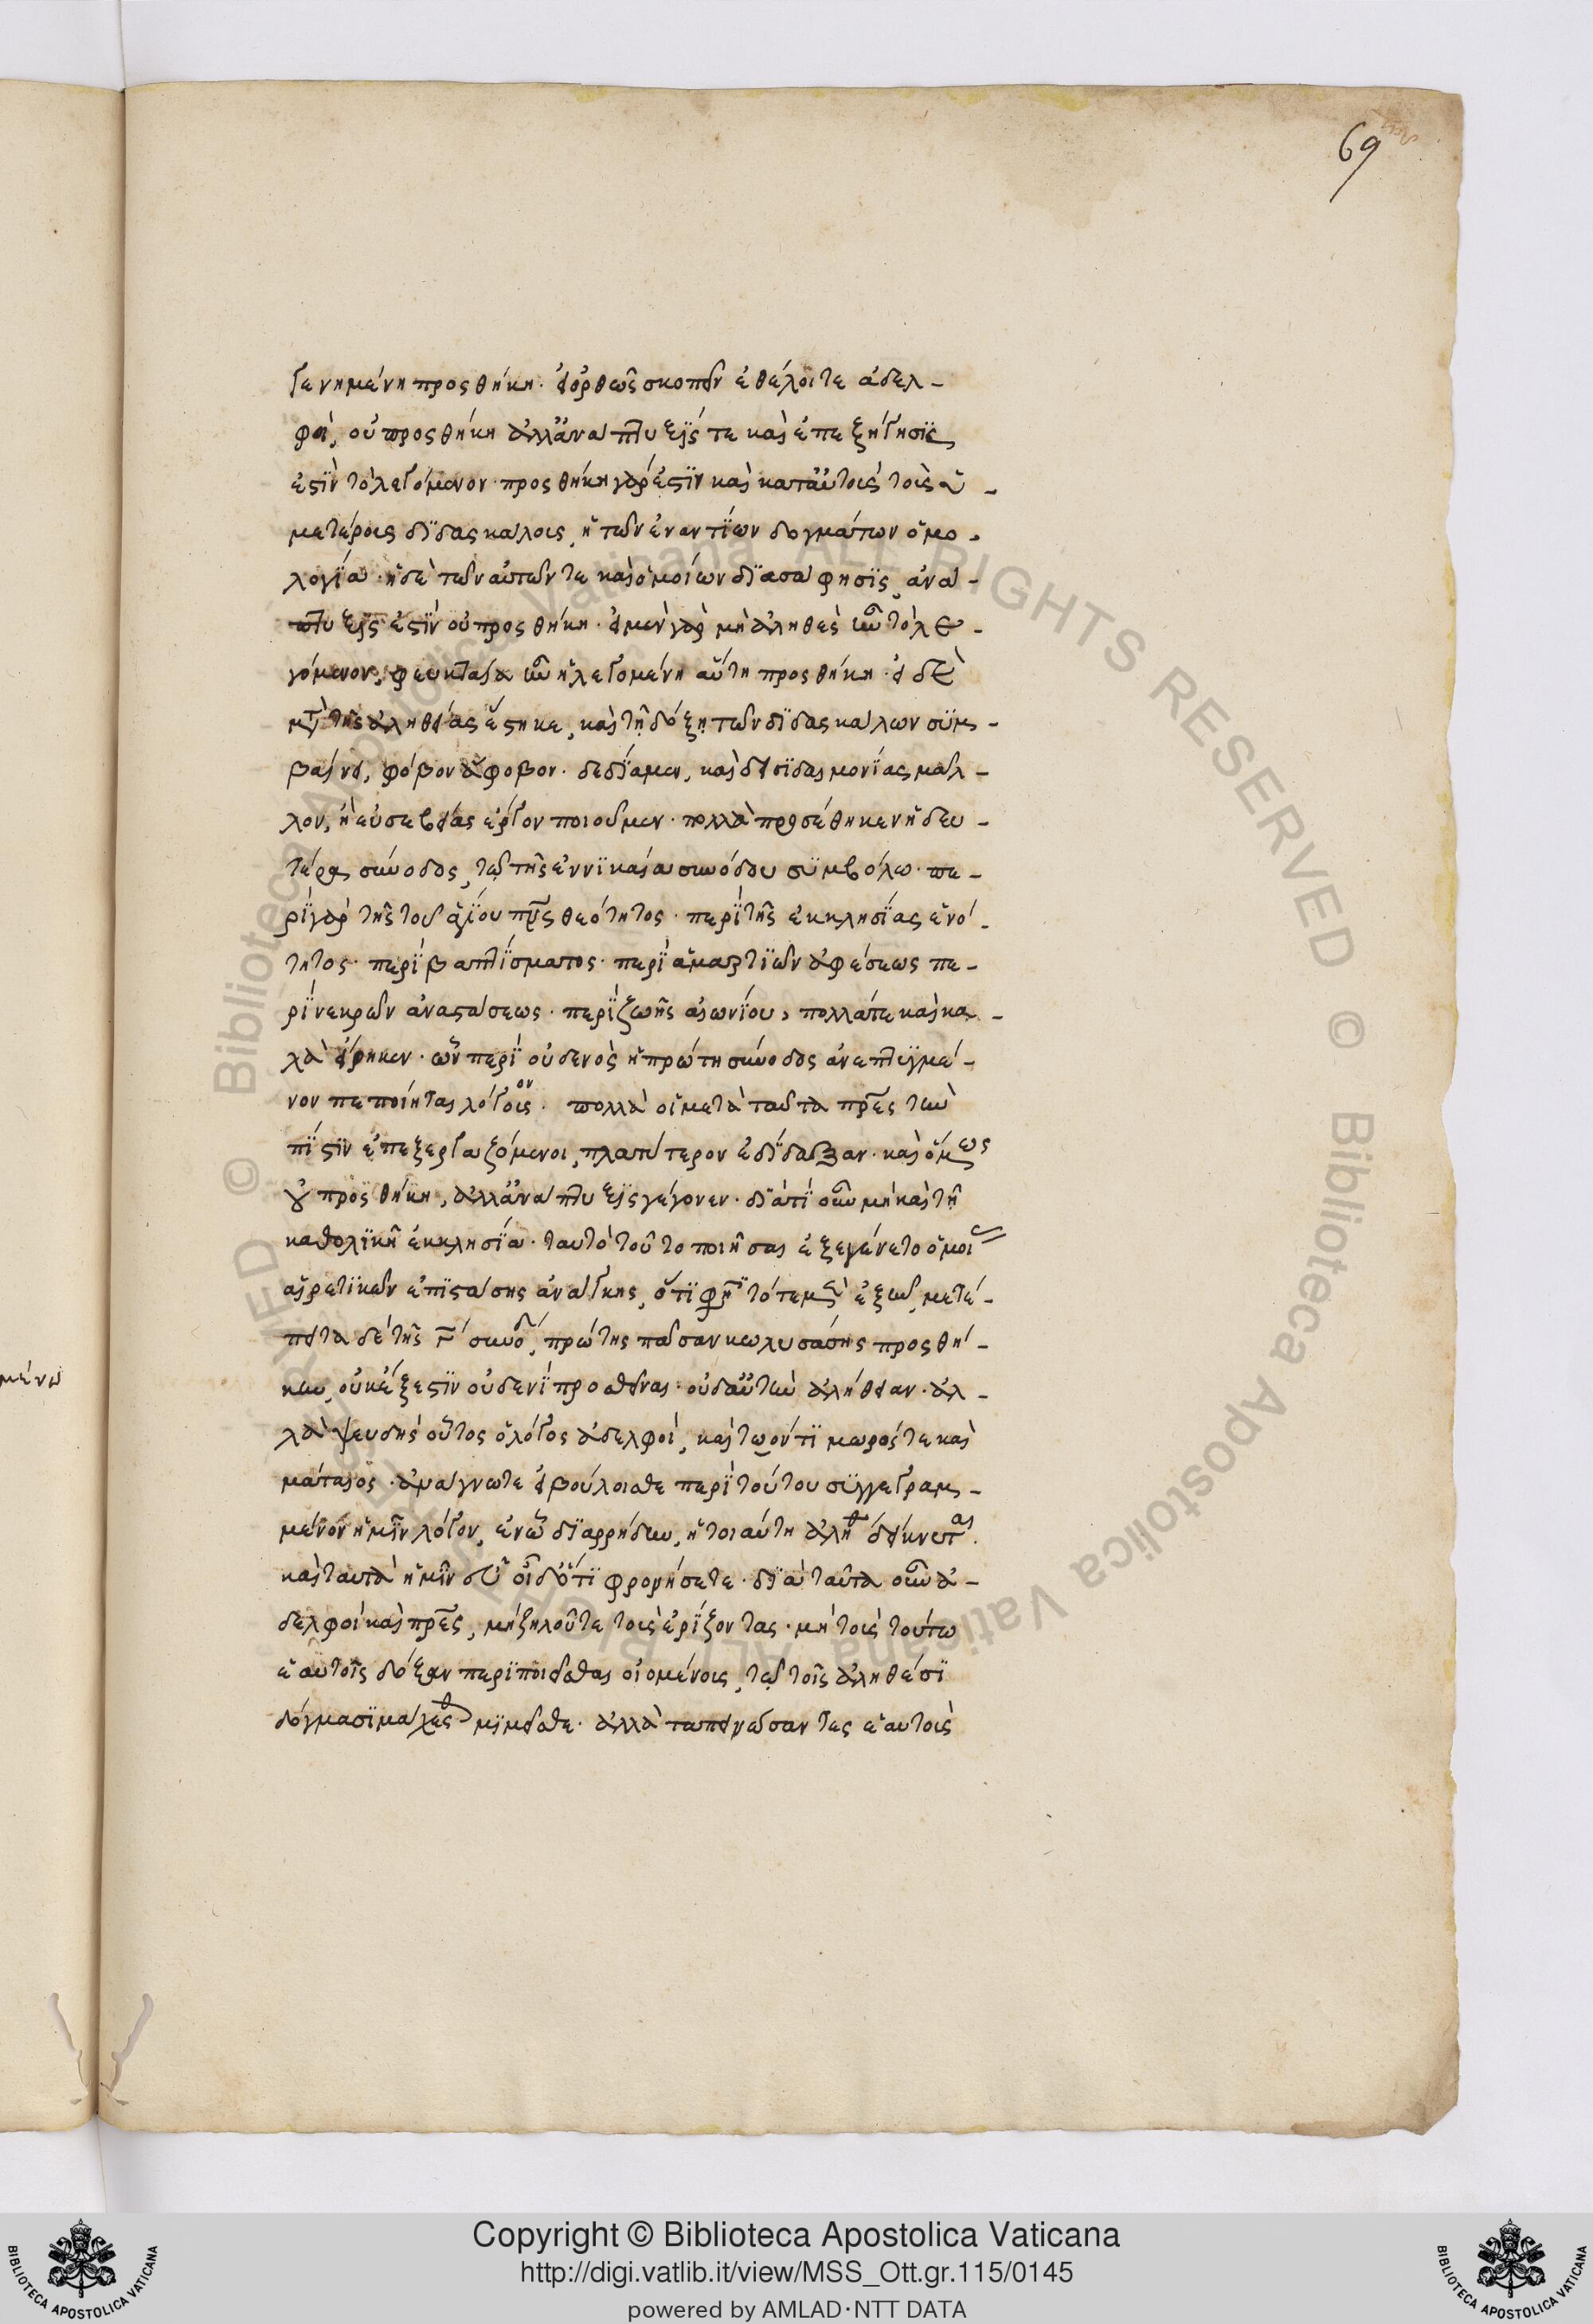 69
γενημένη προσθήκη. εἰ ὀρθῶς σκοπεῖν ἐθέλοιτε ἀδελ-
φοὶ, οὐ προσθήκη ἀλλ' ἀνάπτυξίς τε καὶ ἐπεξήγησις
ἐστὶν τὸ λεγόμενον. προσθήκη γάρ ἐστιν καὶ κατ' αὐτοὺς τοὺς ὑ-
μετέροις διδασκάλοις, ἡ τῶν ἐναντίων δογμάτων ὁμο-
λογία. ἡ δὲ τῶν αὐτῶν τε καὶ ὁμοίων διασάφησις, ἀνά-
πτυξις ἐστὶν οὐ προσθήκη. εἰ μὲν γὰρ μὴ ἀληθὲς ἦν τὸ λε-
γόμενον, φευκταία ἦν ἡ λεγομένη αὕτη προσθήκη. εἰ δὲ
μετὰ τῆς ἀληθείας ἕστηκε, καὶ τῇ δόξῃ τῶν διδασκάλων συμ-
βαίνει, φόβον ἄφοβον. δεδίαμεν, καὶ δεισιδαιμονίας μᾶλ-
λον, ἢ εὐσεβείας ἔργον ποιοῦμεν. πολλὰ προσέθηκεν ἡ δευ-
τέρα σύνοδος, τῷ τῆς ἐν νικαίᾳ συνόδου συμβόλῳ. πε-
ρὶ γὰρ τῆς τοῦ ἁγίου πν̅ς θεότητος. περὶ τῆς ἐκκλησίας ἑνό-
τητος. περὶ βαπτίσματος. περὶ ἁμαρτιῶν ἀφέσεως πε-
ρὶ νεκρῶν ἀναστάσεως. περὶ ζωῆς αἰωνίου, πολλά τε καὶ κα-
λὰ εἴρηκεν. ὧν περὶ οὐδενὸς ἡ πρώτη σύνοδος ἀνεπτυγμέ-
νον πεποίηται λόγον. πολλὰ οἱ μετὰ ταῦτα πρ̅ες τὴν
πίστιν ἐπεξεργαζόμενοι, πλατύτερον ἐδίδαξαν. καὶ ὅμως
οὐ προσθήκη, ἀλλ' ἀνάπτυξις γέγονεν. διατί οὖν μὴ καὶ τῇ
καθολικῇ ἐκκλησίᾳ. ταυτὸ τοῦτο ποιῆσαι ἐξεγένετο ὁμοί
αἱρετικῶν ἐπιστάσης ἀνάγκης, ὅτι φη̅ τότε μὲν ἐξῶν, μετέ-
πειτα δὲ τῆς γ´ συνόδ, πρώτης πᾶσαν κωλυσάσης προσθή-
κην, οὐκ ἔξεστιν οὐδενὶ προσθεῖναι. οὐδ' αὐτὴν ἀλήθειαν. ἀλ-
λὰ ψευδὴς οὗτος ὁ λόγος ἀδελφοὶ, καὶ τῷ ὄντι μωρός τε καὶ
μάταιος. ἀνάγνωτε εἰ βούλοισθε περὶ τούτου συγγεγραμ-
μένον ἡμῖν λόγον, ἐν ᾧ διαρρήδην, ἡ τοιαύτη ἀλήθ δείκνυται.
καὶ ταυτὰ ἡμῖν οἶδ' ὅτι φρονήσετε. διὰ ταῦτα οὖν ἀ-
δελφοὶ καὶ πρ̅ες, μὴ ζηλοῦτε τοὺς ἐρίζοντας. μὴ τοὺς τούτῳ
ἑαυτοῖς δόξαν περιποιεῖσθαι οἰομένοις, τῷ τοῖς ἀληθέσι
δόγμασι μάχεσθ μιμεῖσθε. ἀλλὰ ταπεινώσαντες ἑαυτοὺς
Copyright © Biblioteca Apostolica Vaticana
http://digi.vatlib.it/view/MSS_Ott.gr.115/0145
powered by AMLAD·NTT DATA